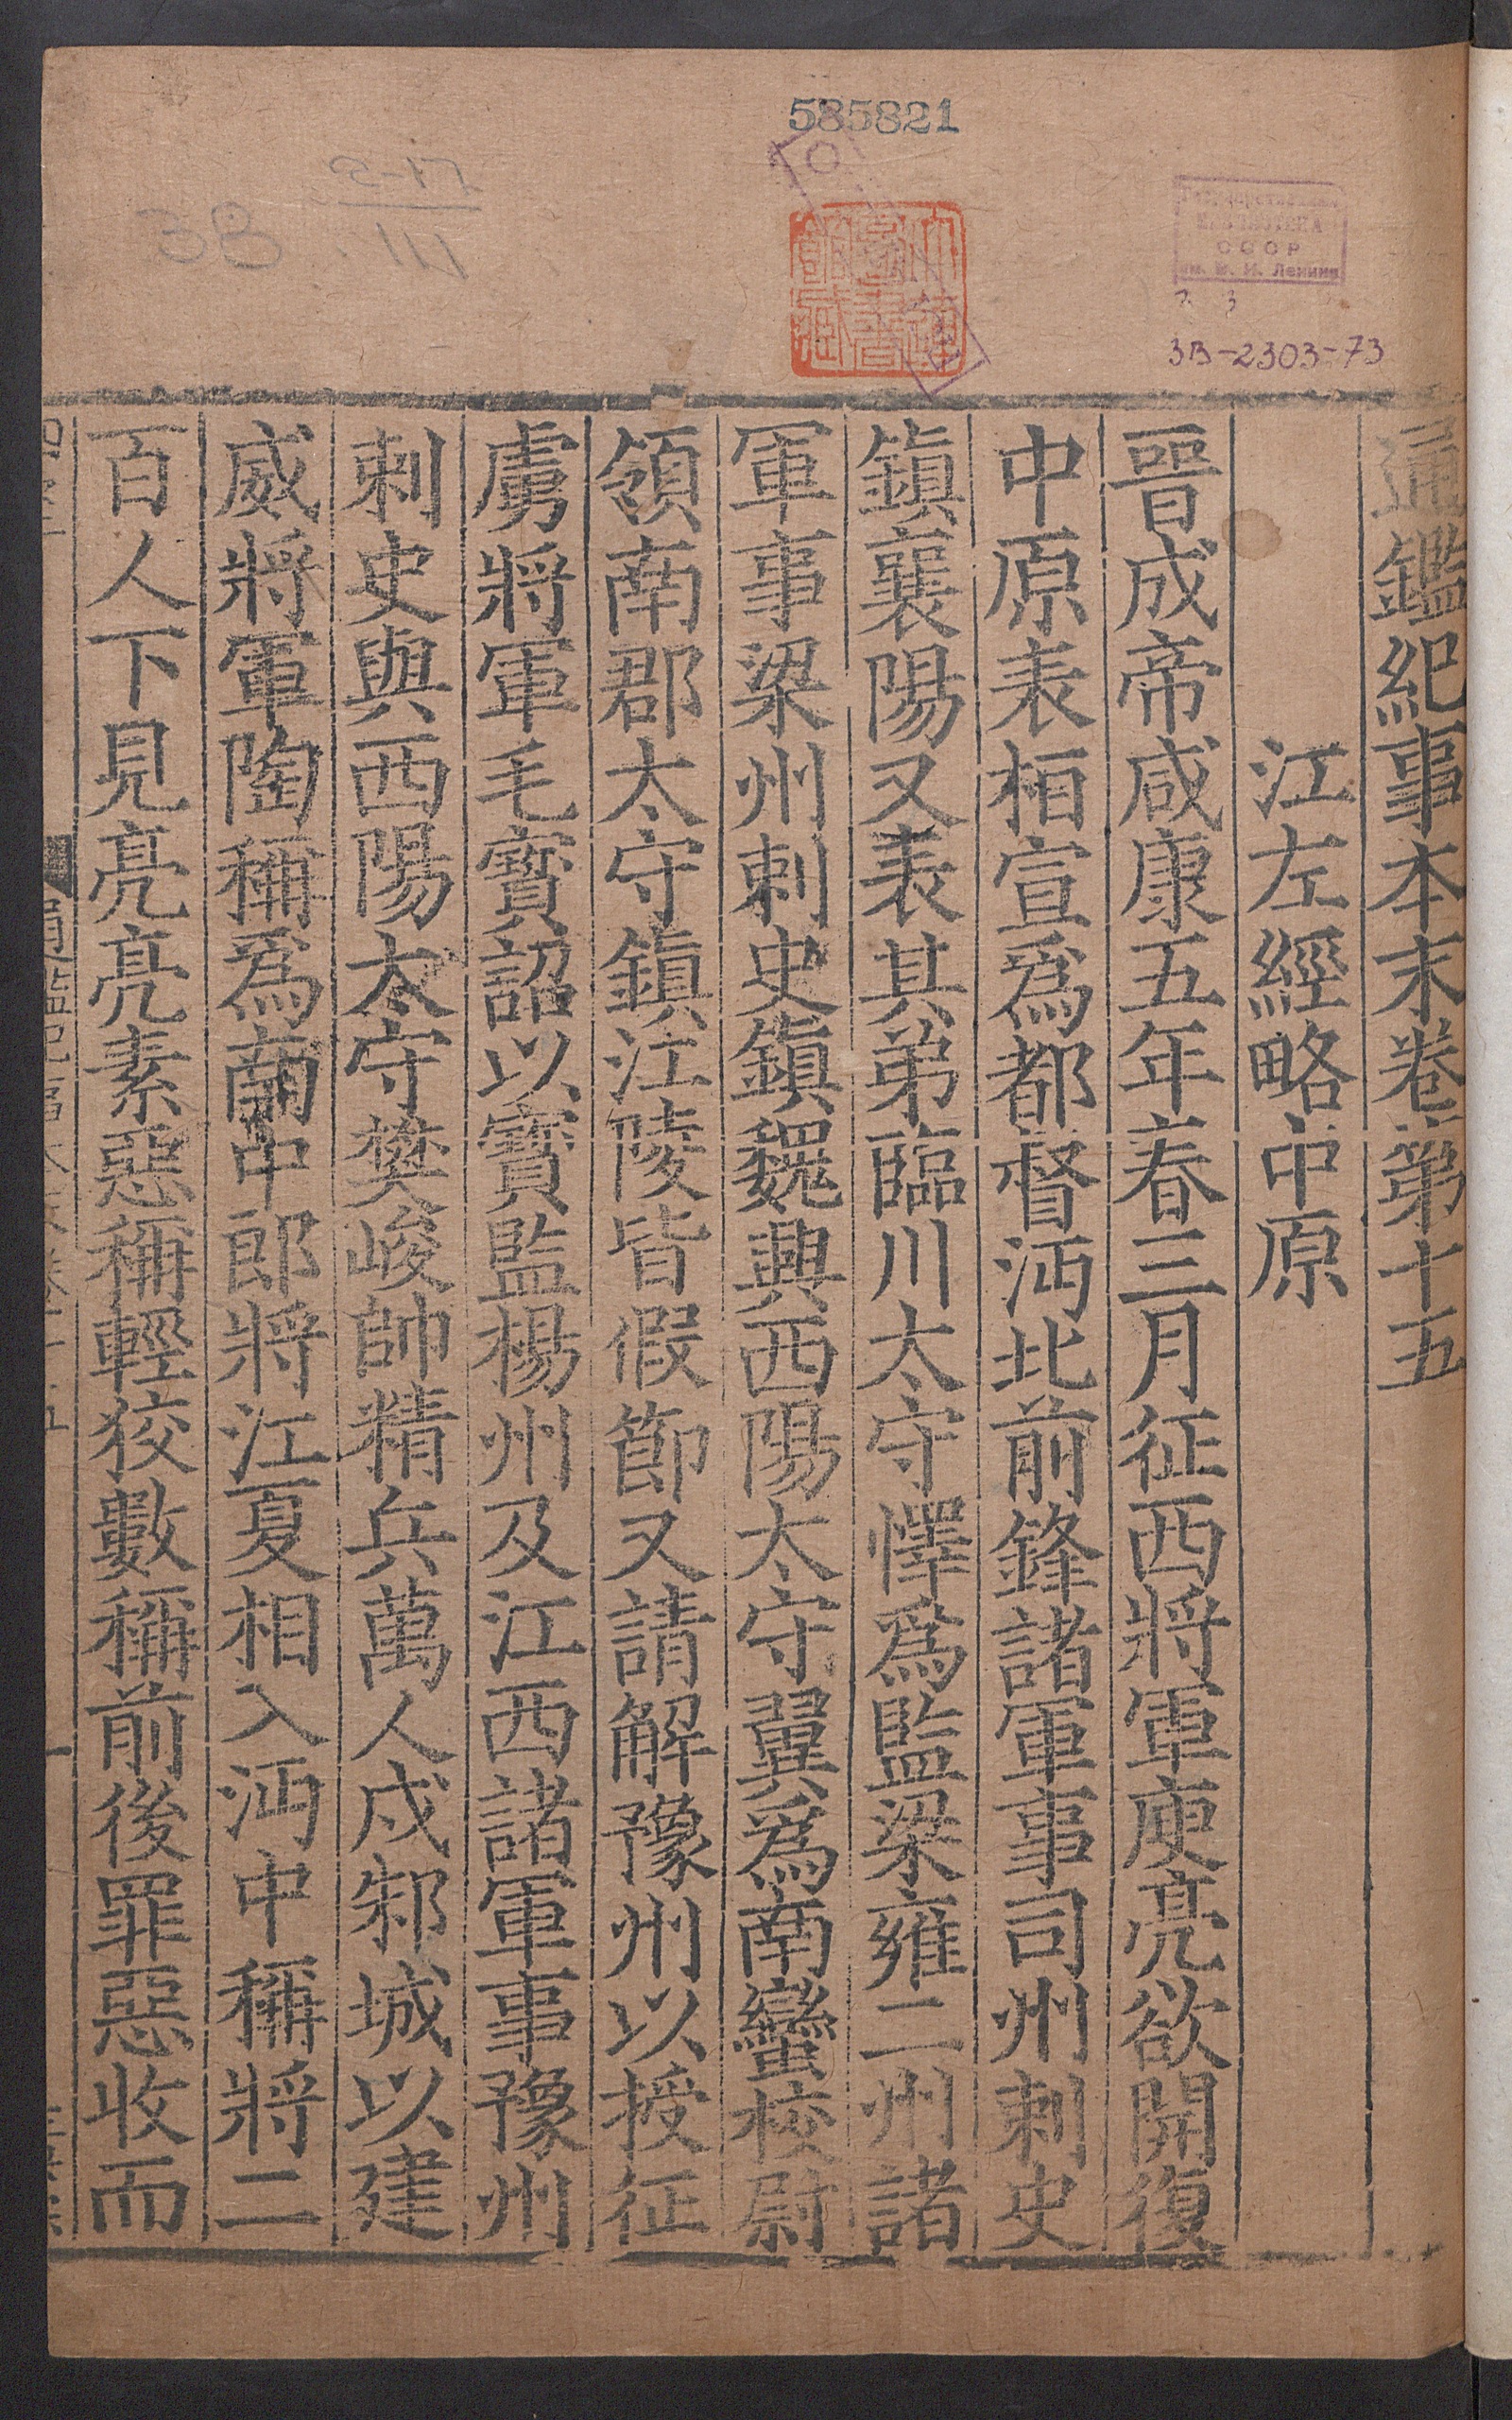 585821
СССР
им. В. И. Ленина
3В-2303-73
通鑑紀事本末卷第十五
江左經略中原
晉成帝咸康五年春三月征西將軍庾亮欲開復
中原表桓宣爲都督沔北前鋒諸軍事司州刺史
鎭襄陽又表其弟臨川太守懌爲監梁雍二州諸
軍事梁州刺史鎭魏興西陽太守翼爲南蠻校尉
領南郡太守鎭江陵皆假節又請解豫州以授征
虜將軍毛寶詔以寶監楊州及江西諸軍事豫州
刺史與西陽太守樊峻帥精兵萬人戍邾城以建
威將軍陶稱爲南中郎將江夏相入沔中稱將二
百人下見亮亮素惡稱輕狡數稱前後罪惡收而